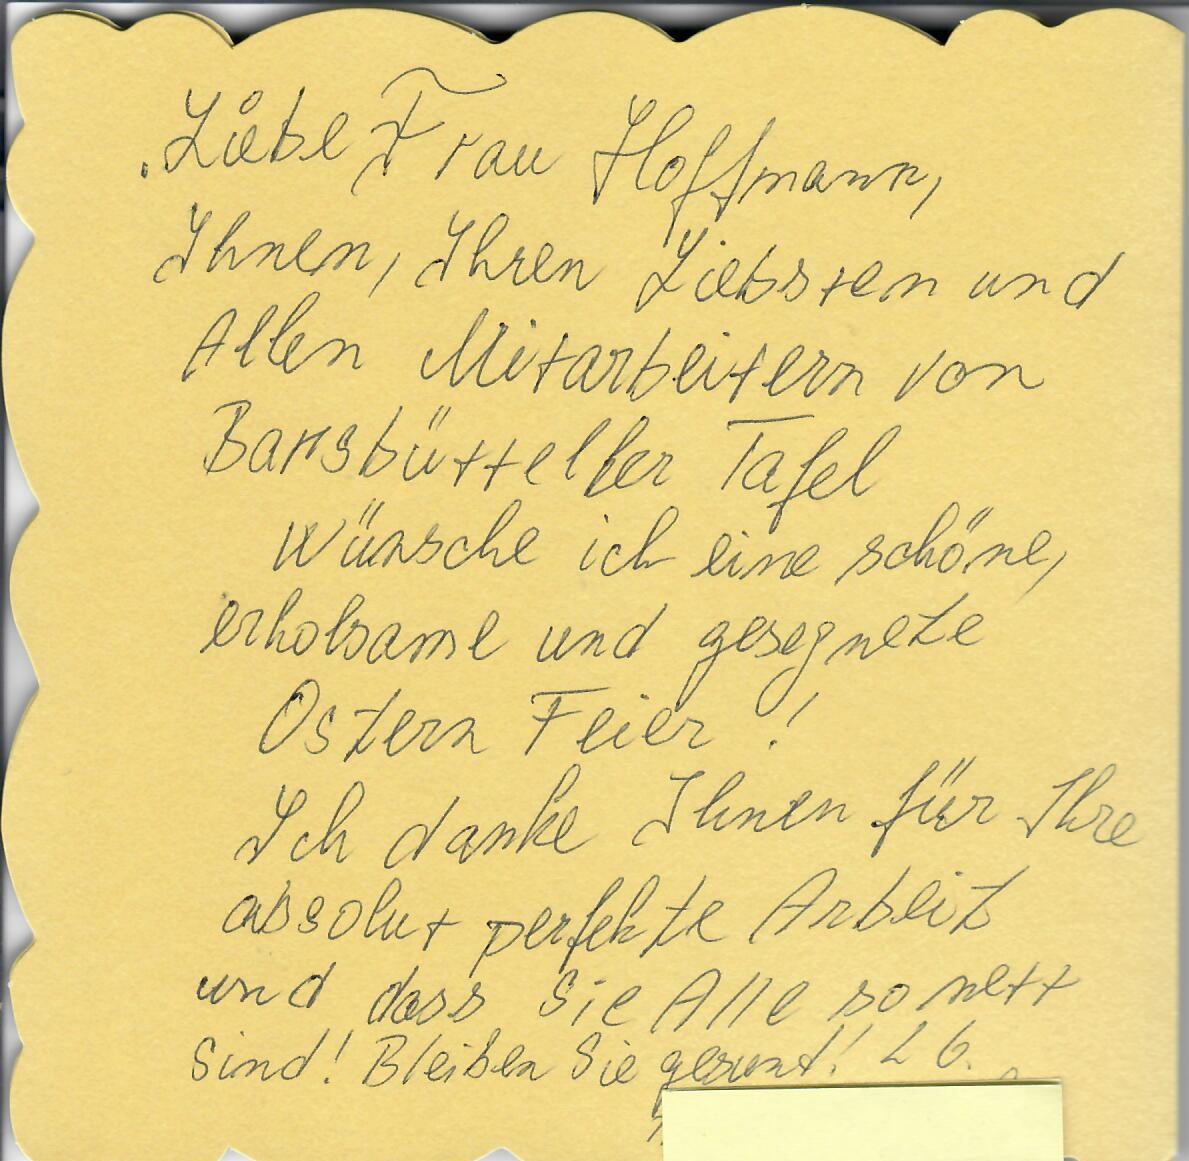 Liebe Frau Hoffmann,
Ihnen, Ihren Liebsten und
Allen Mitarbeitern von
Barsbüttelker Tafel
wünsche ich eine schöne,
erholsame und gesegnete
Ostern Feier!
Ich danke Ihnen für Ihre
absolut perfekte Arbeit
und dass Sie Alle so nett
Sind! Bleiben Sie gesund! LG.